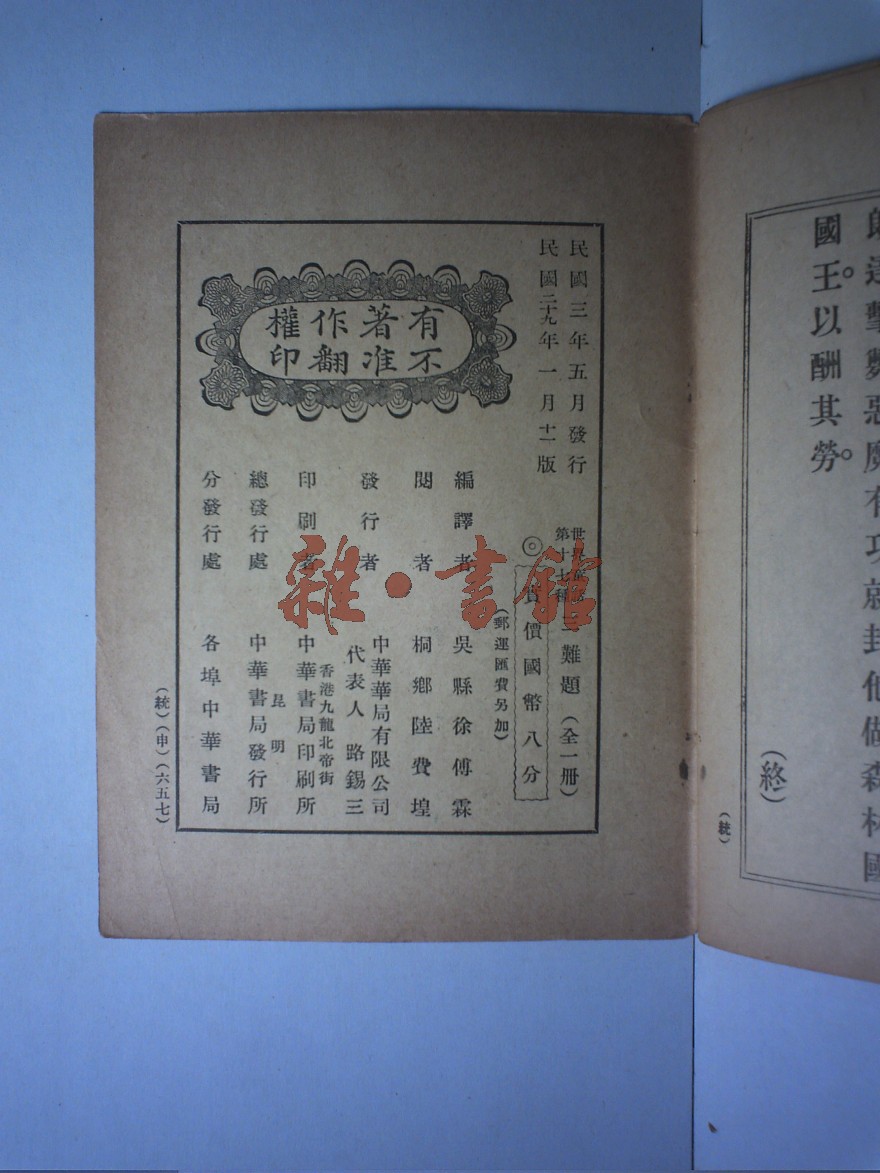 郎達擊斃惡魔有功就封他做森林國
國王。以酬其勞。
(終)
(統)
民國三年五月發行
民國二十九年一月十二版
有著作權
不准翻印
世界童話
第十七種
三難題(全一冊)
◎實價國幣八分
(郵運匯費另加)
編譯者 吳縣徐傅霖
閱者 桐鄉陸費堭
發行者 中華書局有限公司
代表人 路錫三
印刷者 香港九龍北帝街
中華書局印刷所
總發行處 昆明
中華書局發行所
分發行處 各埠中華書局
(統)(申)(六五七)
雜·書館